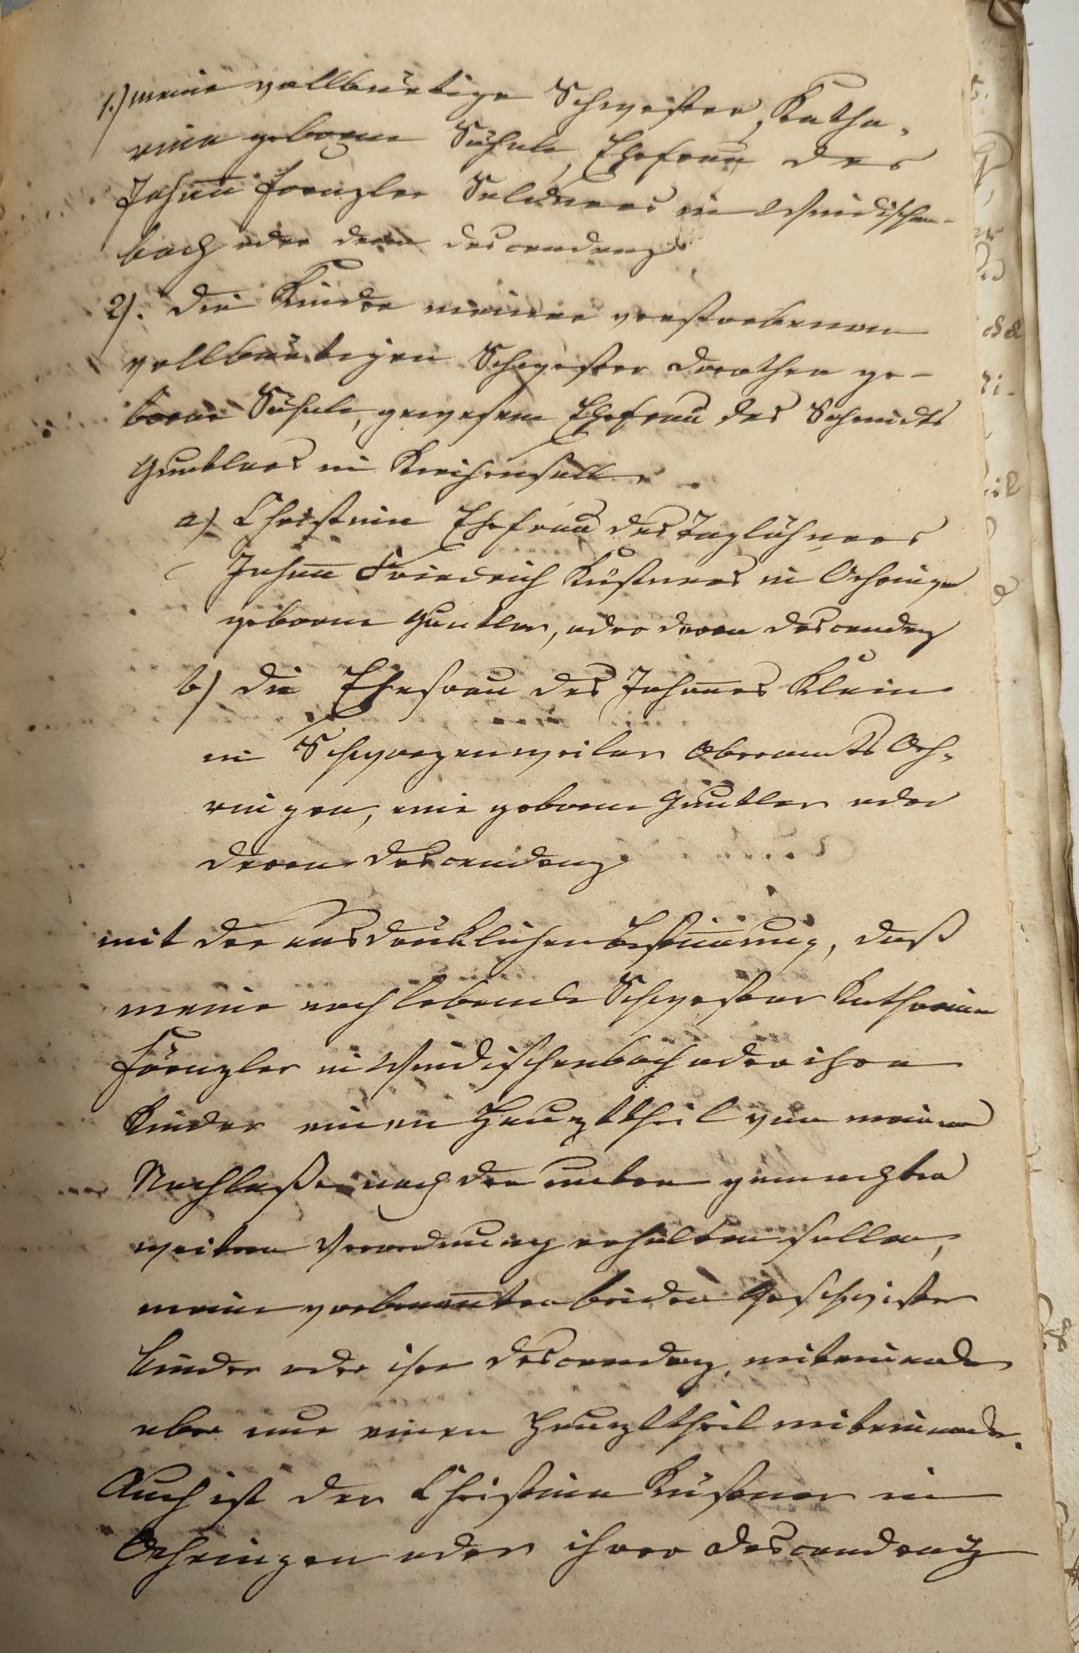 1.) meine vollbürtige Schwester, Katha-
rina geborne Sühele, Ehefrau des
Johann Förnzler Söldners in Windischen-
bach oder deren descendenz
2). die Kinder meiner verstorbenen
vollbürtigen Schwester Dorothea ge-
borne Sühele, gewesene Ehefrau des Schmidts
Guntlers in Kirchensall,
a) Christine Ehefrau des Taglöhners
Johann Friedrich Küstners in Oehringen
geborne Guntler, oder deren descendenz
b) die Ehefrau des Johannes Klein
in Schwarzenweiler Oberamts Oeh-
ringen, eine geborne Guntler oder
deren descendenz
mit der ausdrücklichen Bestimmung, daß
meine noch lebende Schwester Katharina
Förnzler in Windischenbach oder ihre
Kinder einen Haupttheil von meinem
Nachlaße nach der unten gemachten
weitern Verordnung erhalten sollen,
meine vorbenannten beiden Geschwister
kinder oder ihre descendenz, miteinander
aber nur einen Haupttheil miteinander.
Auch ist der Christine Küstner in
Oehringen oder ihrer descendenz